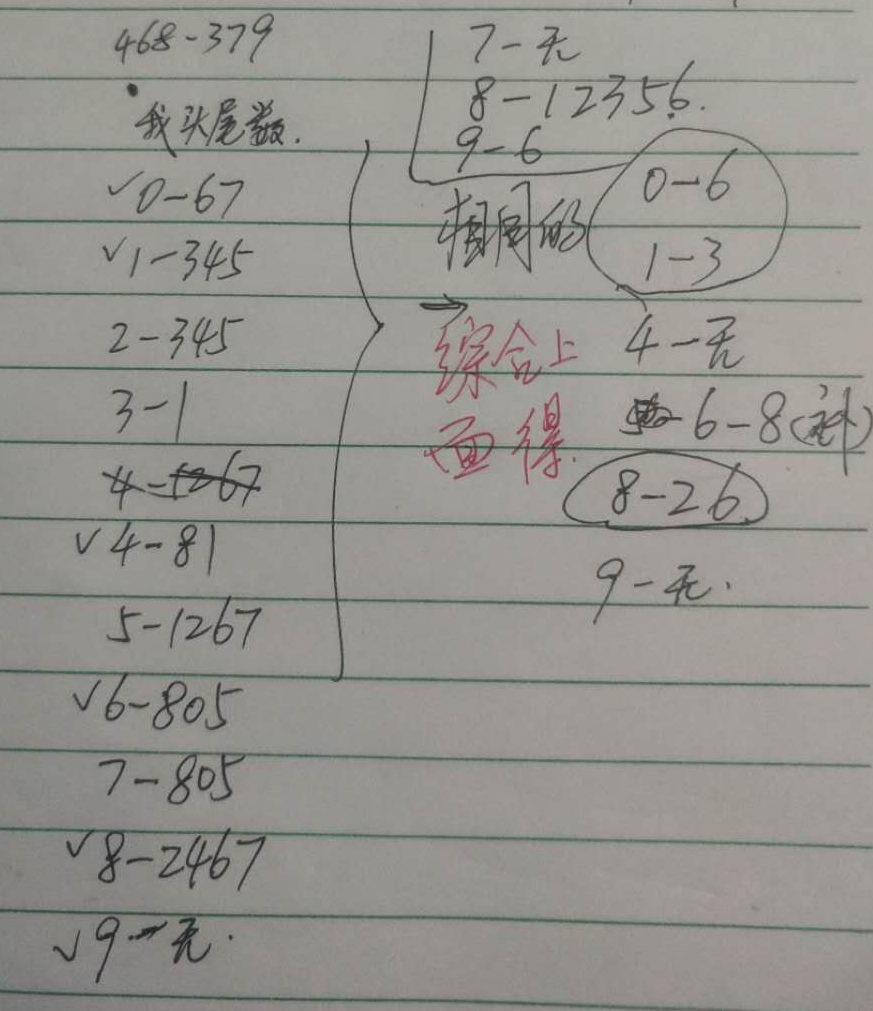 468-379
我头尾数.
✓0-67
✓1-345
2-345
3-1
4-1267
✓4-81
5-1267
✓6-805
7-805
✓8-2467
✓9-无.
7-无
8-12356.
9-6
相同的
0-6
1-3
综合上
面得.
4-无
6-8(补)
8-26
9-无.